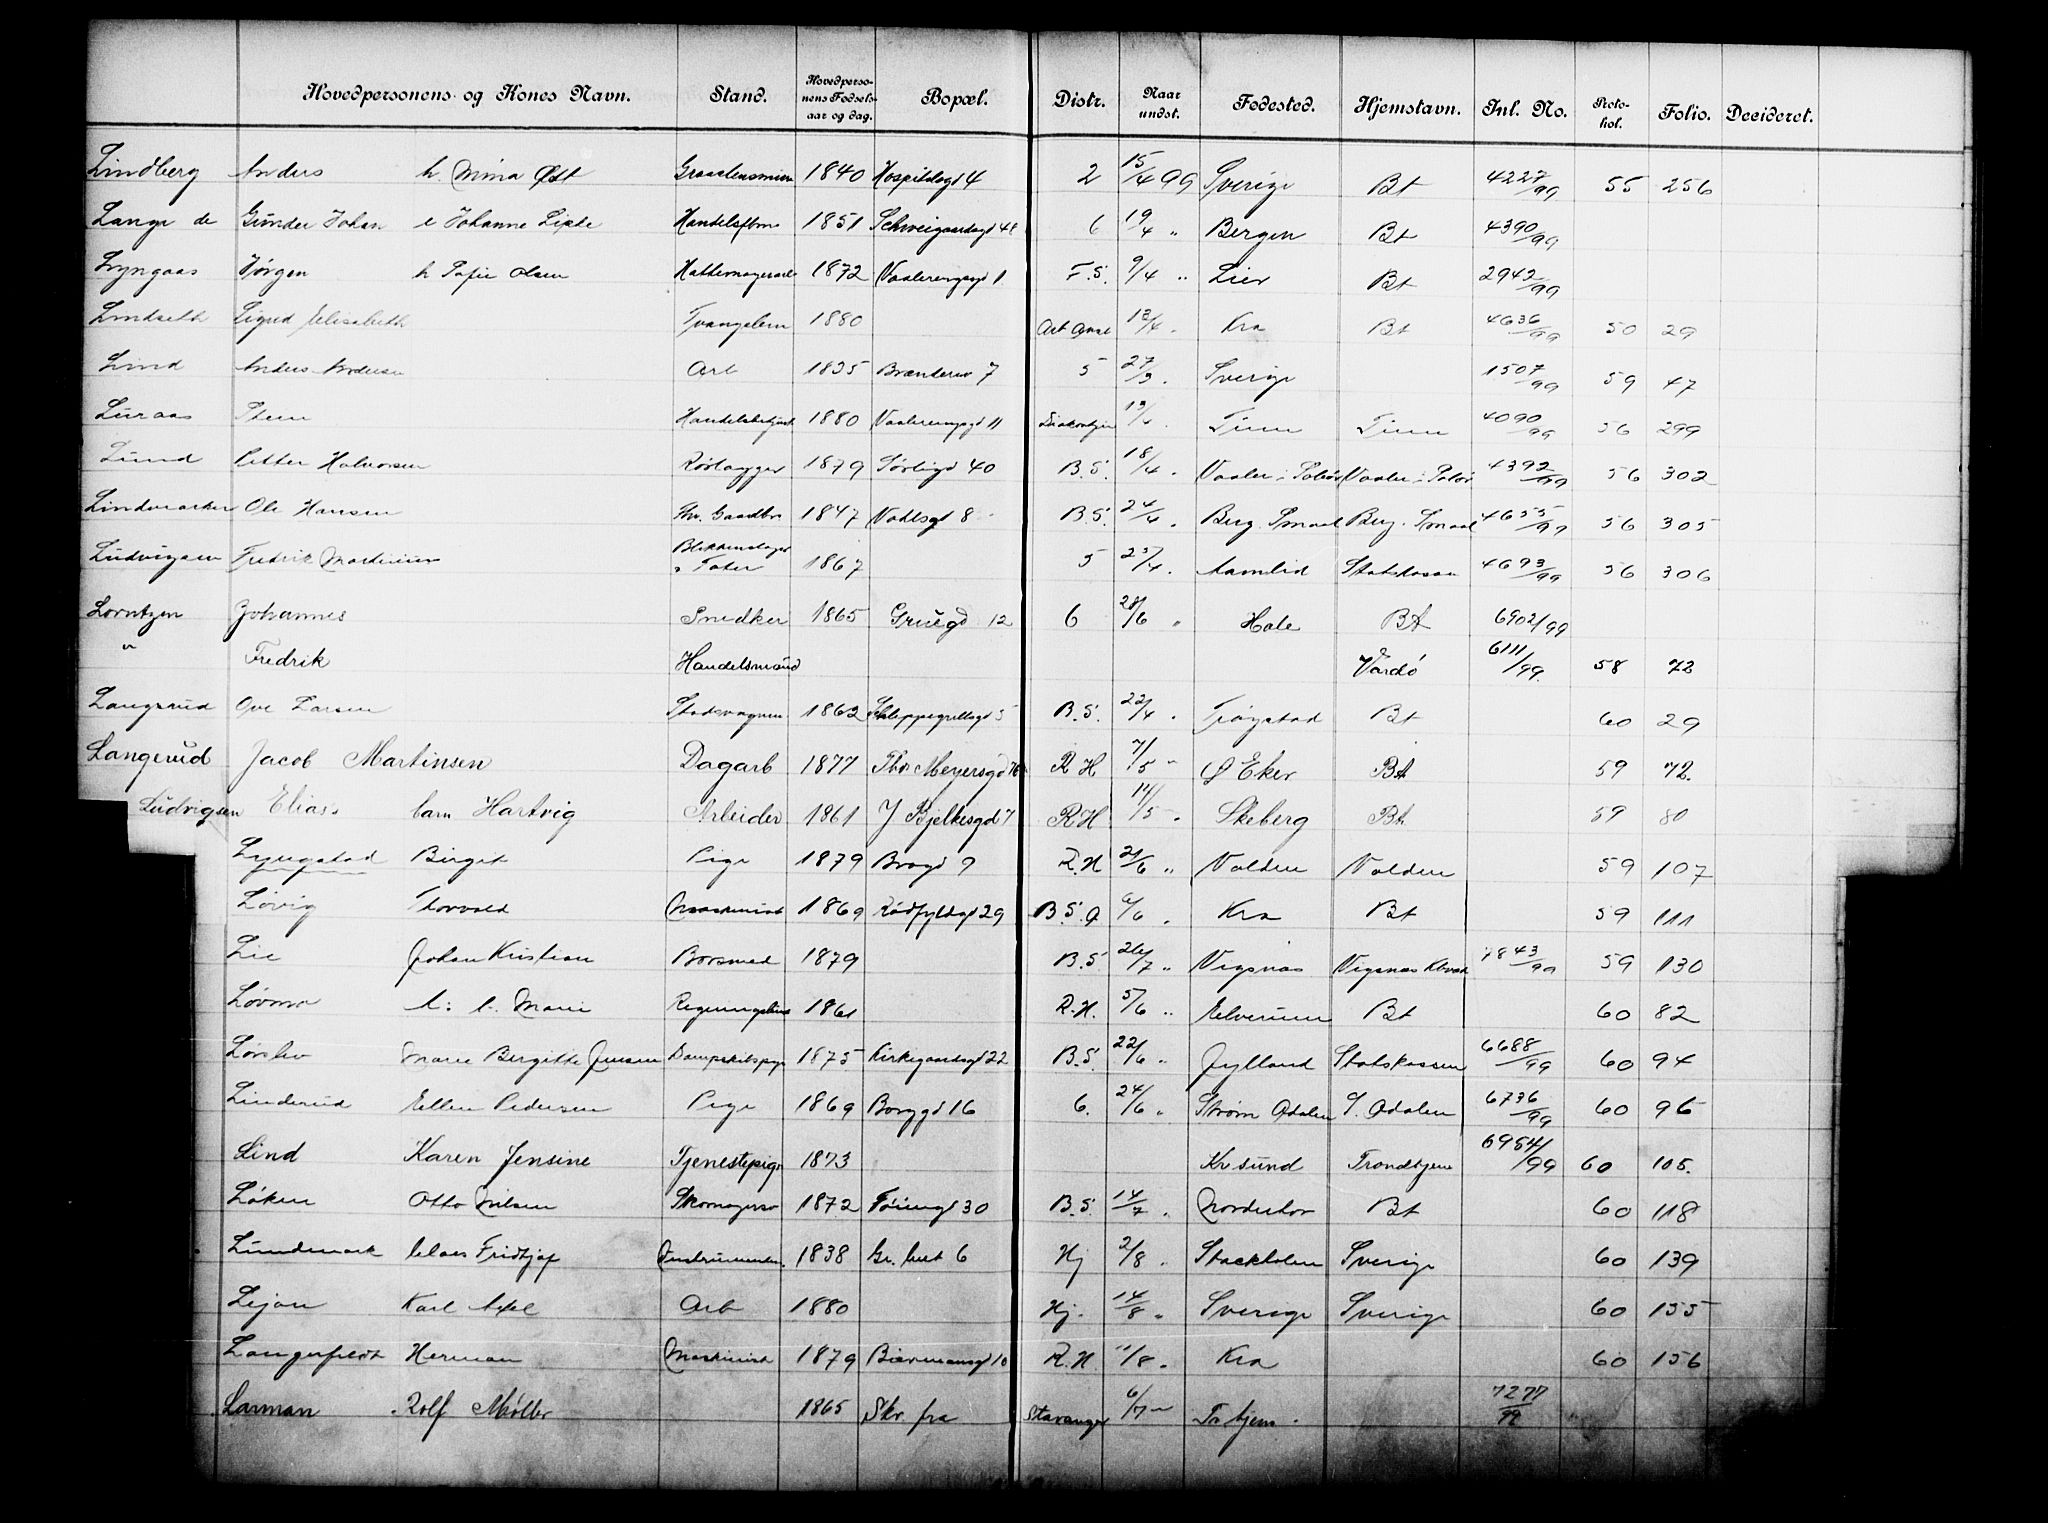 Hovedpersonens og Kones Navn. Stand. Hovedpersonens Fødselsaar og dag. Bopæl. Distr. Naar undst. Fødested. Hjemstavn. Inl. No. Protokol. Folio. Decideret.
Lindberg Anders h. Mina 1840 Hospitalsgd 4 2 15/4 99 Sverige Bt 4227/99 55 256
Lange de Günder Johan e Johanne 1851 Schweigaardsgd 6 19/4 " Bergen Bt 4390/99
Lyngaas Jørgen h. Sofie Olsen 1872 Vaalerengsgd 1 F.S. 9/4 " Lier Bt 2942/99
Lindseth Sigrid Elisabeth 1880 /4 " Kra Bt 4636/99 50 29
Lind Anders Andersen Arb 1835 7 5 27/3 " Sverige 1507/99 59 47
Luraas Stein 1880 Vaalerengsgd 11 Tinn Tinn 4090/99 56 299
Lund Petter Halvorsen Rørlægger 1879 Sørligd 40 B.S. 18/4 " Vaaler i Solør Vaaler i Solør 4392/99 56 302
Ole Hansen 1847 8 B.S. 24/4 " Berg. Smaal Berg. Smaal 4655/99 56 305
Ludvigsen Fredrik Martinius Blikkenslager 1867 5 25/4 " Aamlid Statskassen 4693/99 56 306
Lorntzen Johannes Snedker 1865 Gruegd 12 6 28/6 " Hole Bt 6902/99
" Fredrik Handelsmand Vardø 6111/99. 58 72
Langsrud Ove Larsen 1862 Schleppegrellsgd 5 B.S. 22/4 " Trøgstad Bt 60 29
Langerud Jacob Martinsen Dagarb 1877 Thv Meyersgd R H 7/5 " Ø Eker Bt 59 72.
Ludvigsen Elias. barn Hartvig Arbeider 1861 J Bjelkesgd 7 R.H. 11/5 " Skeberg Bt. 59 80
Lyngstad Birgit Pige 1879 Brogd 9 R.H 2/6 " Volden Volden 59 107
Løvig Thorvald Maskinist 1869 Rødfyldgd 29 B.S. 6/6 " Kra Bt 59 111
Lie Johan Kristian 1879 B.S 26/7 " Vigsnæs Vigsnæs 7843/99 59 130
Marie 1861 R.H. 5/6 " Elverum Bt 60 82
Marie Birgitte Jensen 1875 Kirkegaardsgd 22 B.S. 22/6 " Jylland Statskassen 6688/99 60 94
Linderud Ellen Pedersen Pige 1869 Borggd 16 6. 24/6 " Strøm Odalen S. Odalen 6736/99 60 96
Lind Karen Jensine Tjenestepige 1873 Kr.sund Trondhjem 6954/99 60 105.
Løken Otto Nilsen Skomagersv 1872 Tøiengd 30 B.S. 14/7 " Norderhov Bt 60 118
Lundmark Claes Fridtjof 1838 6 Hj 2/8 " Stockholm Sverige 60 139
Lejon Karl Axel Arb 1880 Hj. 14/8 " Sverige Sverige 60 155
Langenfeldt Herman Maskinist 1879 Biermannsgd 10 R.H. 11/8 " Kra 60 156
Larman Rolf Møller 1865 Skr. fra Stavanger 6/7 " Trhjem. 7277/99